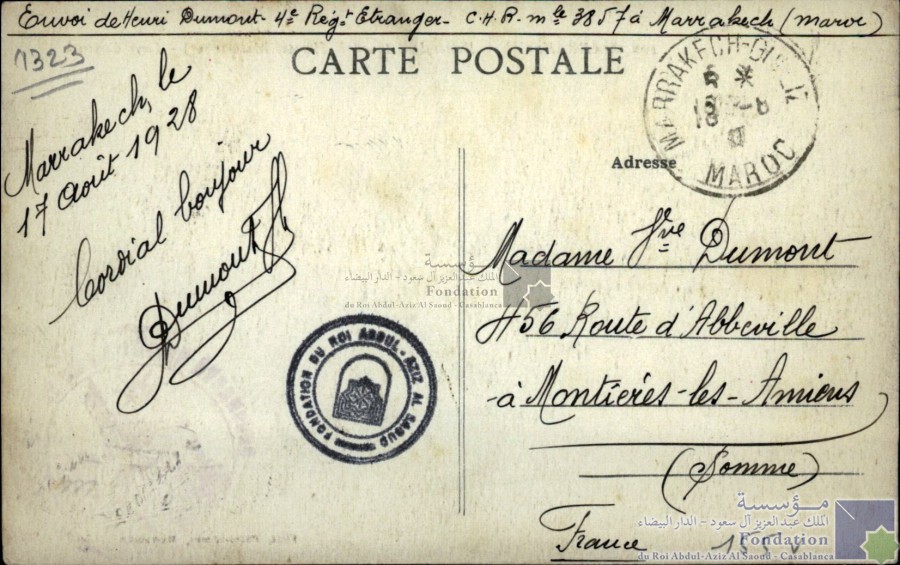 Envoi de Henri Dumont - 4e Régt Etranger - C.H.R. - mle 3857 à Marrakech (maroc)
1323
CARTE POSTALE
MARRAKECH-GUELIZ
MAROC
Marrakech, le
17 Août 1928
Cordial bonjour
Dumont H
Adresse
Madame Vve Dumont
456 Route d'Abbeville
- à Montières-les-Amiens
(Somme)
France
FONDATION DU ROI ABDUL-AZIZ AL SAOUD
مؤسسة
الملك عبد العزيز آل سعود - الدار البيضاء
Fondation
du Roi Abdul-Aziz Al Saoud - Casablanca
مؤسسة
الملك عبد العزيز آل سعود - الدار البيضاء
Fondation
du Roi Abdul-Aziz Al Saoud - Casablanca